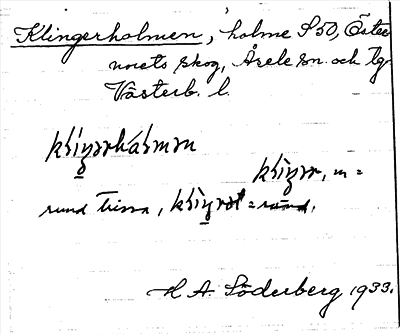 Klingerholmen, holme S 50, Öster
norets skog, Åsele sn. och tg
Västerb. l.
klíŋərhólmən
klìŋər, m =
rund trissa, klìŋrət = rund.
H A. Söderberg 1933.